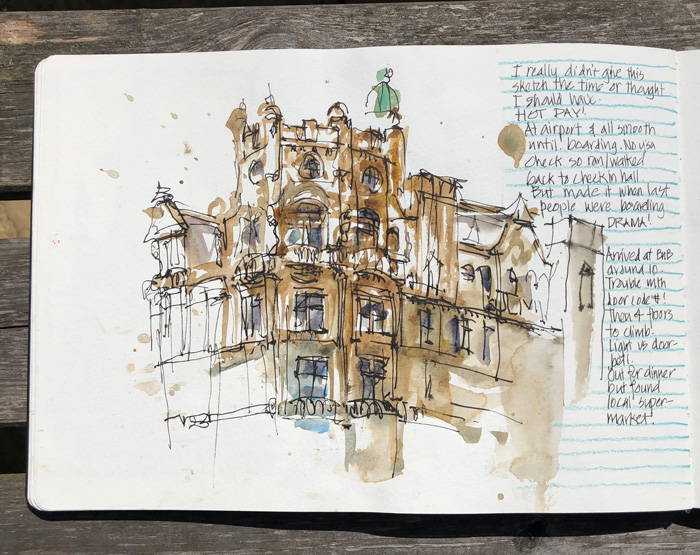 I really didn't give this
sketch the time or thought
I should have.
HOT DAY!
At airport & all smooth
until boarding. No visa
check so ran/walked
back to checkin hall.
But made it when last
people were boarding
DRAMA!
Arrived at BnB
around 10.
Trouble with
door code #!
Then 4 floors
to climb!
Light vs door-
bell!
Out for dinner
but found
local super-
market!